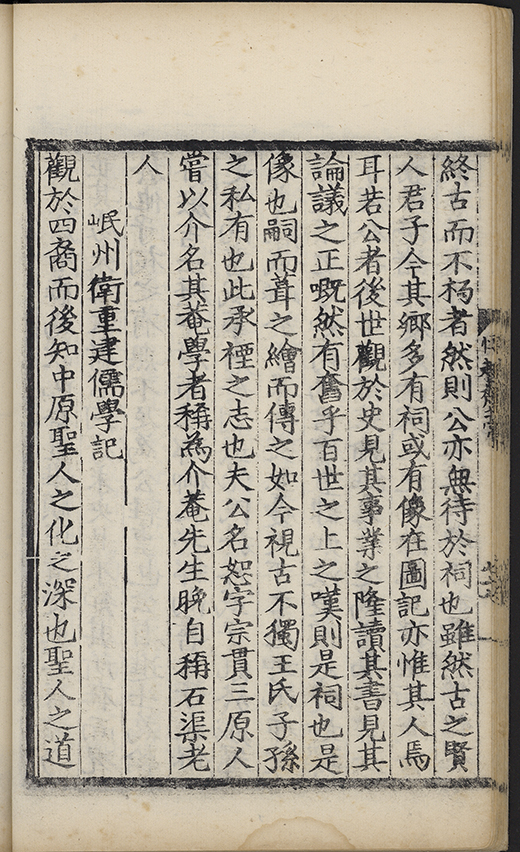 終古而不朽者然則公亦無待於祠也雖然古之賢
人君子今其鄉多有祠或有像在圖記亦惟其人焉
耳若公者後世觀於史見其事業之隆讀其書見其
論議之正嘅然有奮乎百世之上之嘆則是祠也是
像也嗣而葺之繪而傳之如今視古不獨王氏子孫
之私有也此承禋之志也夫公名恕字宗貫三原人
嘗以介名其菴學者稱為介菴先生晚自稱石渠老
人
岷州衛重建儒學記
觀於四裔而後知中原聖人之化之深也聖人之道